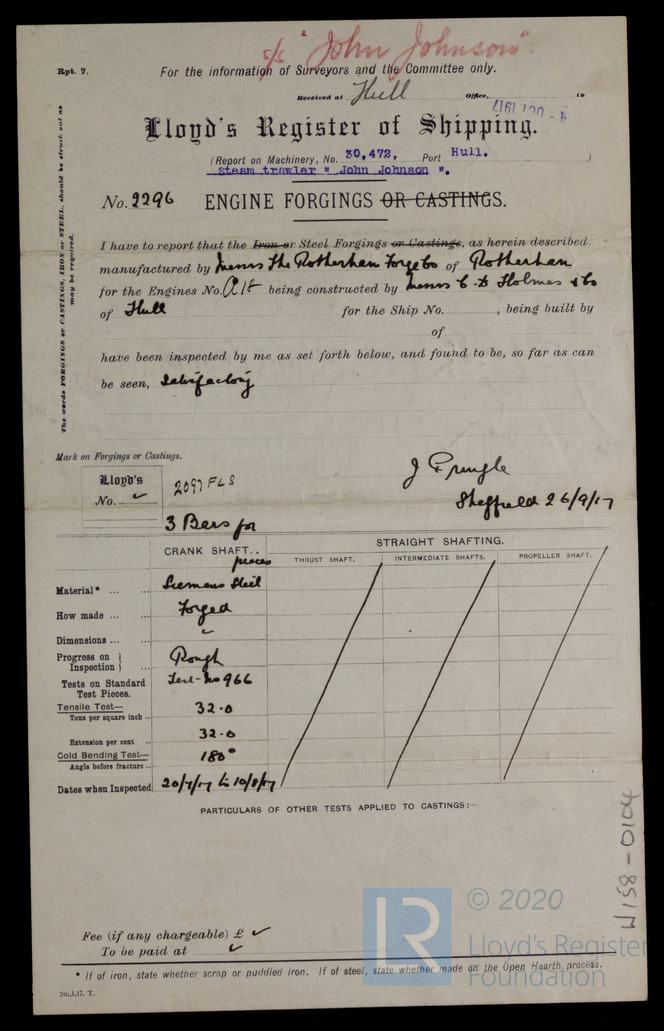 c/s "John Johnson"
Rpt. 7.
For the information of Surveyors and the Committee only.
Received at Hull Office, 19
Lloyd's Register of Shipping.
(Report on Machinery, No. 30,472, Port Hull. )
Steam trawler " John Johnson ".
No. 2296 ENGINE FORGINGS OR CASTINGS.
The words FORGINGS or CASTINGS, IRON or STEEL, should be struck out as
may be required.
I have to report that the Iron or Steel Forgings or Castings, as herein described,
manufactured by Messrs The Rotherham Forge Co of Rotherham
for the Engines No. being constructed by Messrs C. D Holmes & Co
of Hull for the Ship No. , being built by
of
have been inspected by me as set forth below, and found to be, so far as can
be seen, satisfactory
Mark on Forgings or Castings.
Lloyd's
No. ✓
2097 FLS
J Pringle
Sheffield 26/9/17
3 Bars for
CRANK SHAFT..
pieces
STRAIGHT SHAFTING.
THRUST SHAFT. INTERMEDIATE SHAFTS. PROPELLER SHAFT.
Material* ... ... Siemens Steel
How made ... ... Forged
Dimensions ... ... "
Progress on } Rough
Inspection } ...
Tests on Standard Test No 966
Test Pieces.
Tensile Test— 32.0
Tons per square inch ...
32.0
Extension per cent ...
Cold Bending Test— 180°
Angle before fracture ...
Dates when Inspected 20/7/17 to 10/8/17
PARTICULARS OF OTHER TESTS APPLIED TO CASTINGS:—
W158-0104
Fee (if any chargeable) £ ✓
To be paid at ✓
* If of iron, state whether scrap or puddled iron. If of steel, state whether made on the Open Hearth process.
2m,1,17. T.
LR
© 2020
Lloyd's Register
Foundation